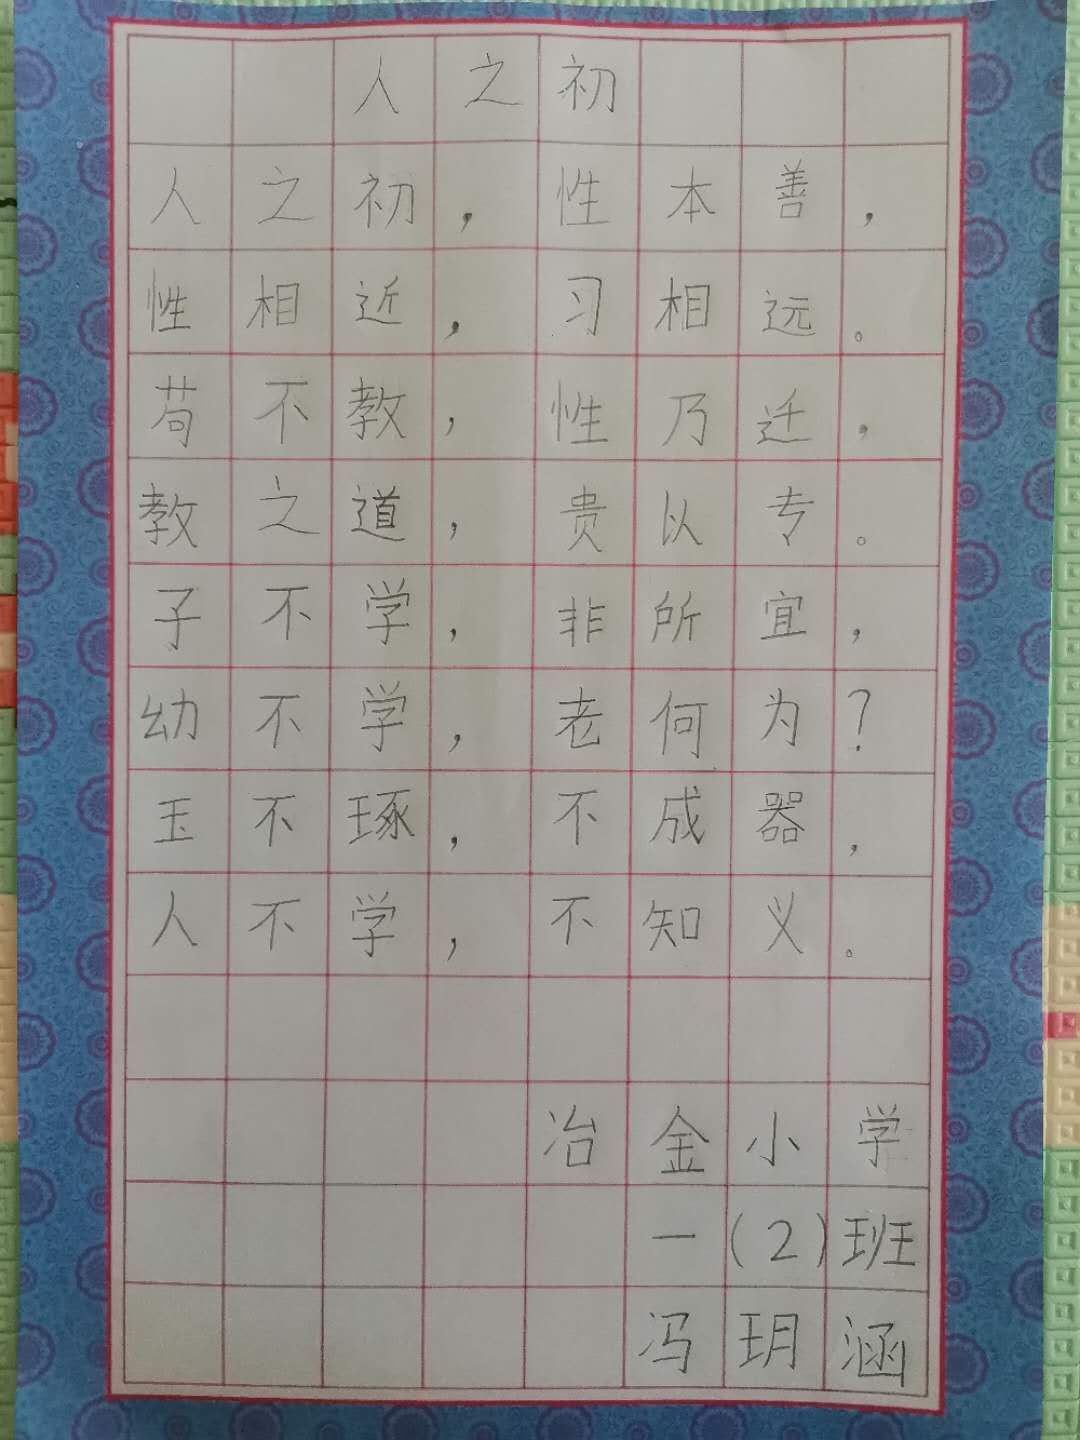 人之初
人之初，性本善，
性相近，习相远。
苟不教，性乃迁，
教之道，贵以专。
子不学，非所宜，
幼不学，老何为？
玉不琢，不成器，
人不学，不知义。
冶金小学
一(2)班
冯玥涵